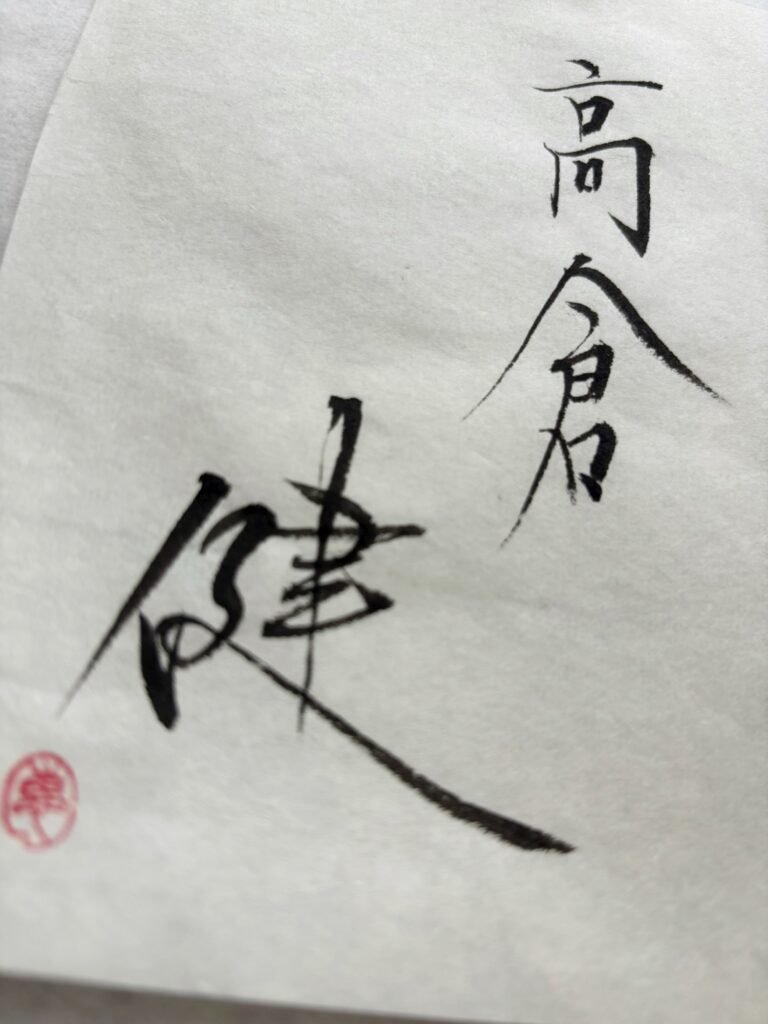 高倉
健